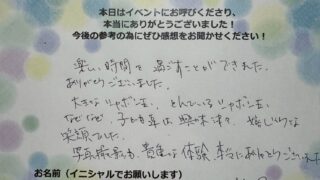 本日はイベントにお呼びくださり、
本当にありがとうございました！
今後の参考の為にぜひ感想をお聞かせください！
楽しい時間を過ごすことができました。
ありがとうございました。
大きなシャボン玉、とんでいるシャボン玉
などなど、子ども達は
笑顔でした。
貴重な体験
お名前（イニシャルでお願いします）